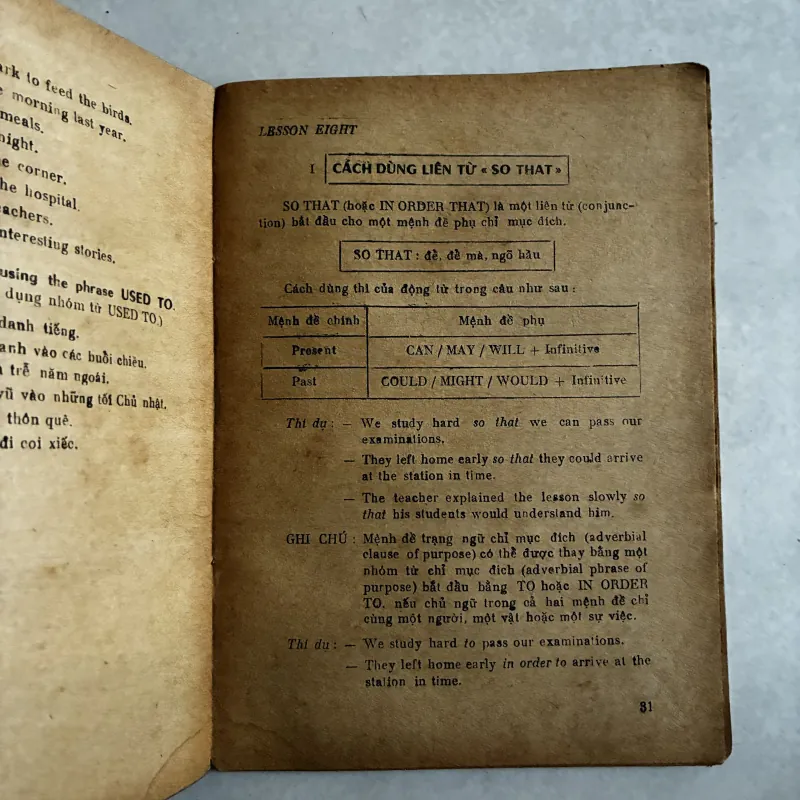 to feed the birds.
morning last year.
meals.
night.
corner.
hospital.
stories.
using the phrase USED TO.
dụng nhóm từ USED TO.)
danh tiếng.
vào các buổi chiều.
trễ năm ngoái.
vào những tối Chủ nhật.
thôn quê.
đi coi xiếc.
LESSON EIGHT
I CÁCH DÙNG LIÊN TỪ « SO THAT »
SO THAT (hoặc IN ORDER THAT) là một liên từ (conjunc-
tion) bắt đầu cho một mệnh đề phụ chỉ mục đích.
SO THAT : để, để mà, ngõ hầu
Cách dùng thì của động từ trong câu như sau :
Mệnh đề chính Mệnh đề phụ
Present CAN / MAY / WILL + Infinitive
Past COULD / MIGHT / WOULD + Infinitive
Thí dụ : — We study hard so that we can pass our
examinations.
— They left home early so that they could arrive
at the station in time.
— The teacher explained the lesson slowly so
that his students would understand him.
GHI CHÚ : Mệnh đề trạng ngữ chỉ mục đích (adverbial
clause of purpose) có thể được thay bằng một
nhóm từ chỉ mục đích (adverbial phrase of
purpose) bắt đầu bằng TO hoặc IN ORDER
TO, nếu chủ ngữ trong cả hai mệnh đề chỉ
cùng một người, một vật hoặc một sự việc.
Thí dụ : — We study hard to pass our examinations.
— They left home early in order to arrive at the
station in time.
31